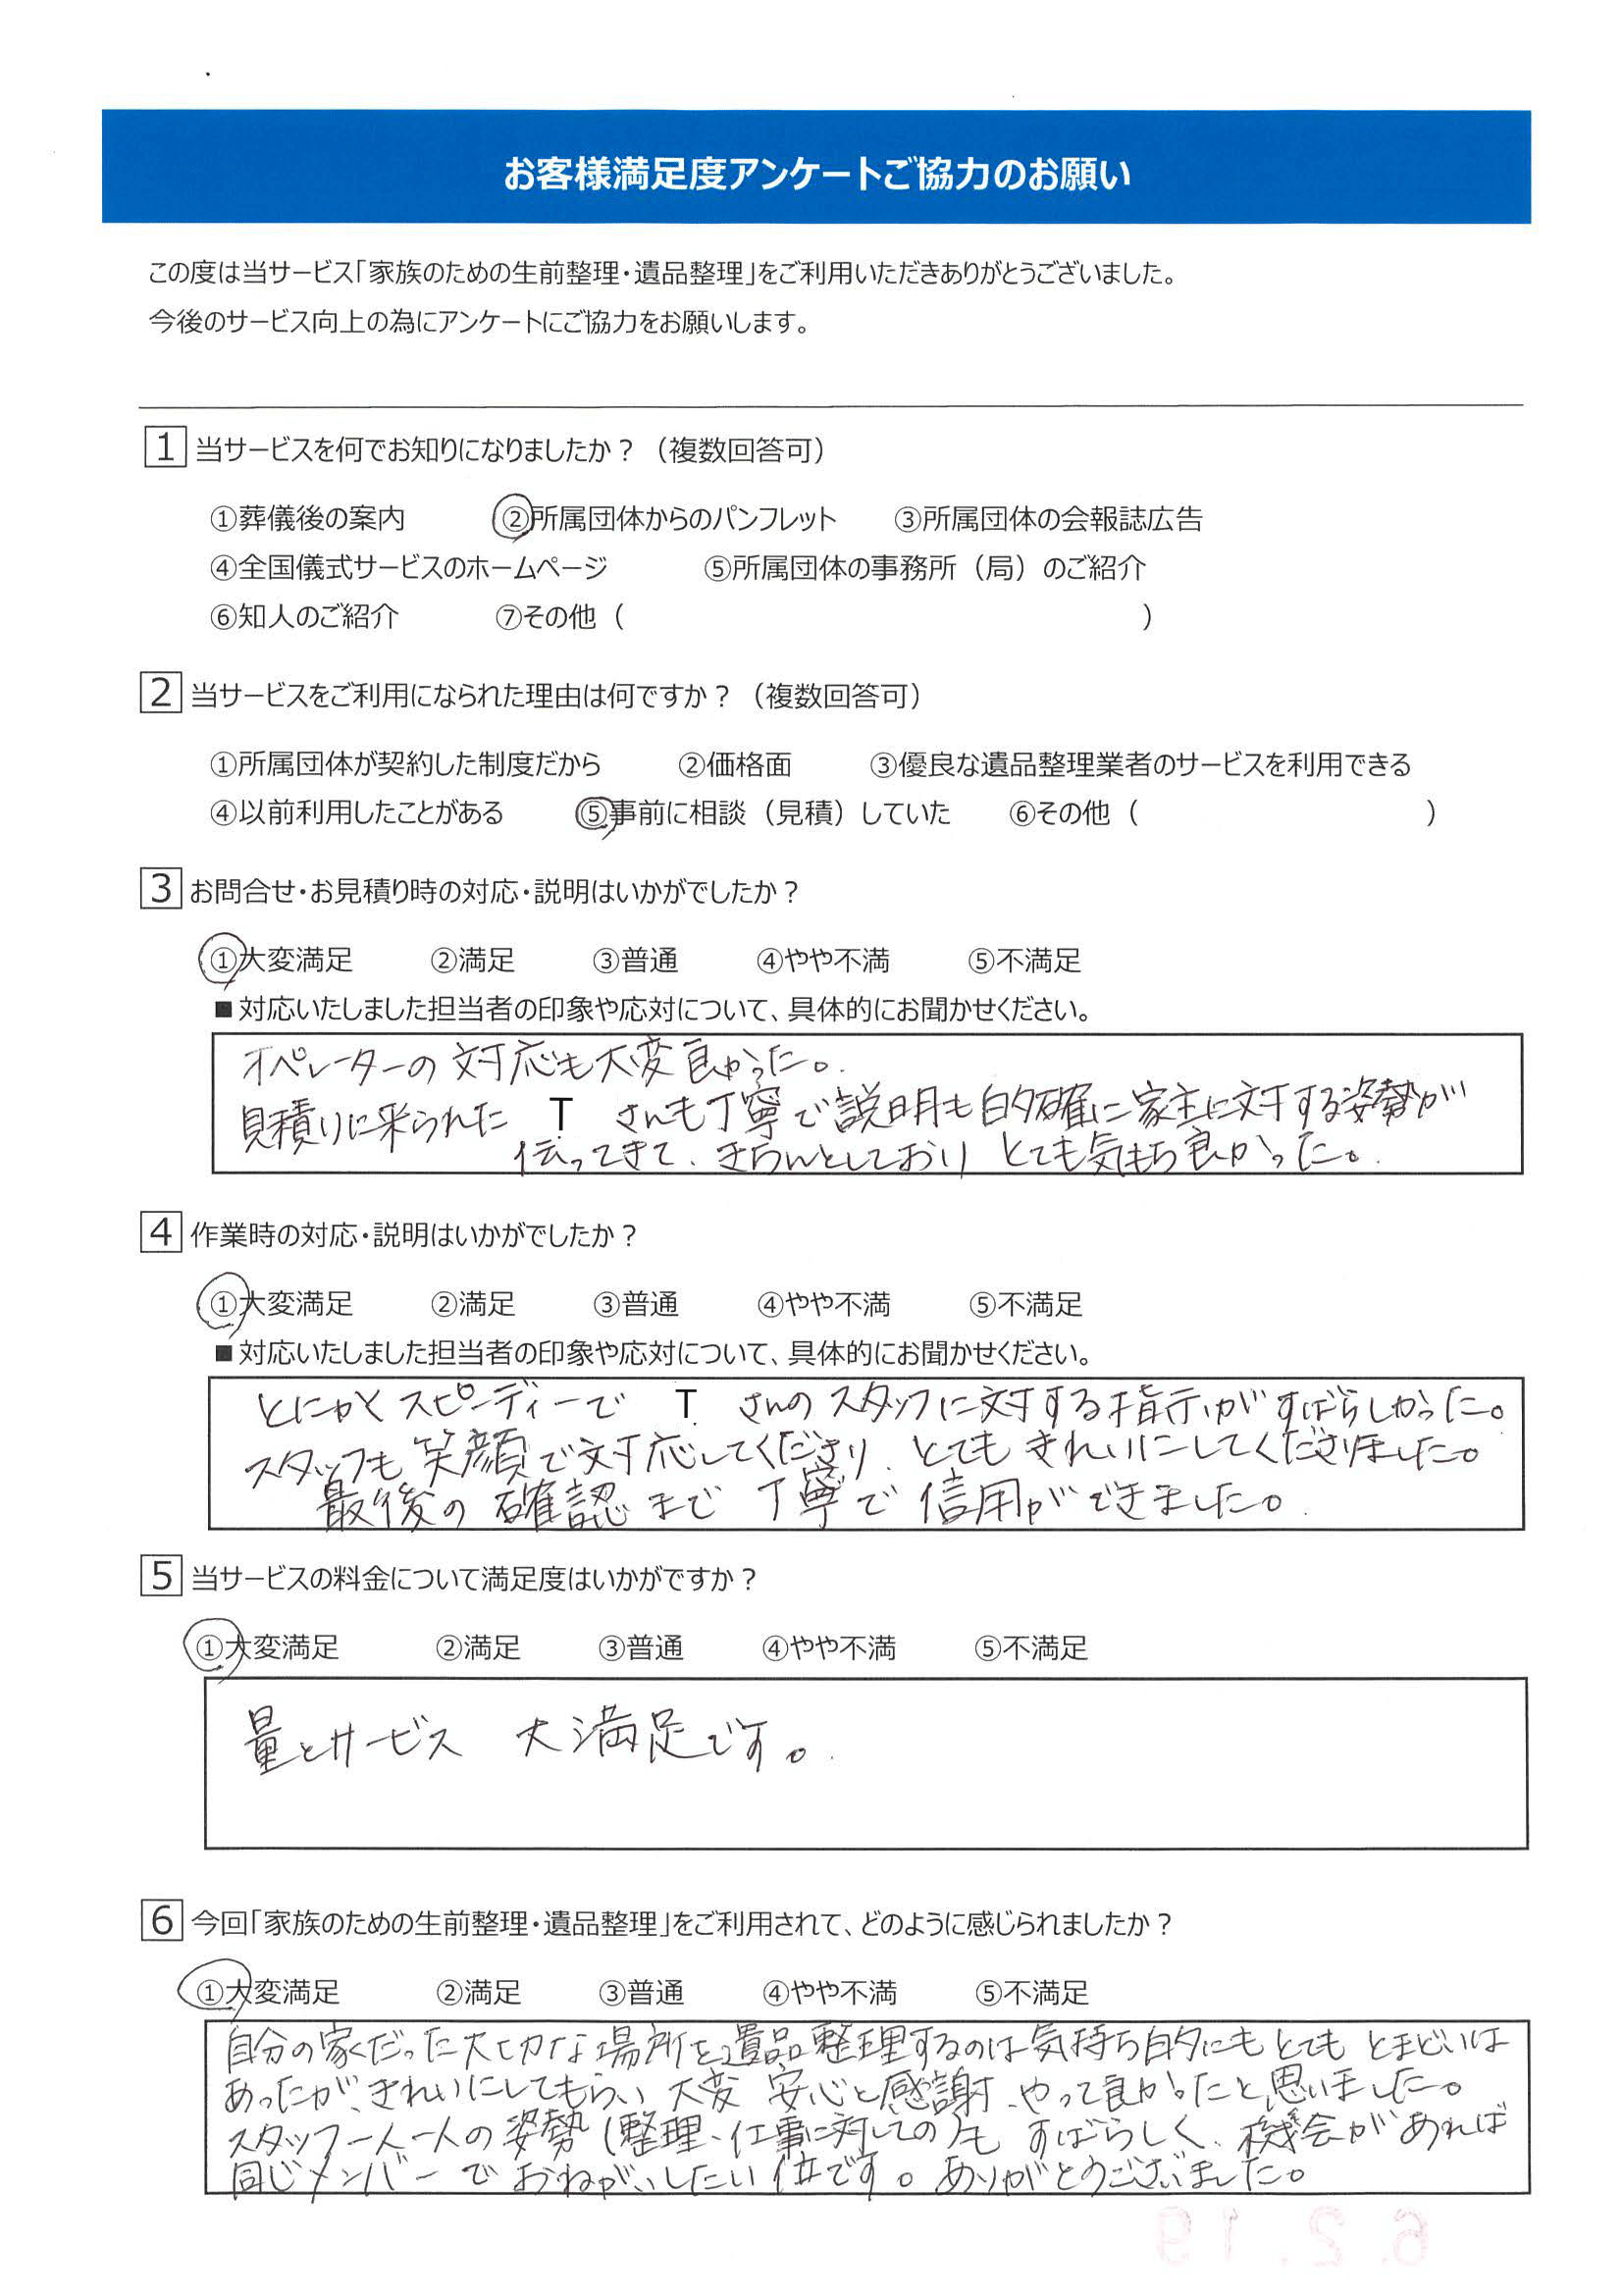 お客様満足度アンケートご協力のお願い
この度は当サービス「家族のための生前整理・遺品整理」をご利用いただきありがとうございました。
今後のサービス向上の為にアンケートにご協力をお願いします。
1 当サービスを何でお知りになりましたか？（複数回答可）
①葬儀後の案内 ②所属団体からのパンフレット ③所属団体の会報誌広告
④全国儀式サービスのホームページ ⑤所属団体の事務所（局）のご紹介
⑥知人のご紹介 ⑦その他（ ）
2 当サービスをご利用になられた理由は何ですか？（複数回答可）
①所属団体が契約した制度だから ②価格面 ③優良な遺品整理業者のサービスを利用できる
④以前利用したことがある ⑤事前に相談（見積）していた ⑥その他（ ）
3 お問合せ・お見積り時の対応・説明はいかがでしたか？
①大変満足 ②満足 ③普通 ④やや不満 ⑤不満足
■対応いたしました担当者の印象や応対について、具体的にお聞かせください。
オペレーターの対応も大変良かった。
見積りに来られた T さんも丁寧で説明も的確に家主に対する姿勢が
伝ってきて、きちんとしており とても気もち良かった。
4 作業時の対応・説明はいかがでしたか？
①大変満足 ②満足 ③普通 ④やや不満 ⑤不満足
■対応いたしました担当者の印象や応対について、具体的にお聞かせください。
とにかくスピーディーで T さんのスタッフに対する指示がすばらしかった。
スタッフも笑顔で対応してくださり、とてもきれいにしてくださりました。
最後の確認まで丁寧で信用ができました。
5 当サービスの料金について満足度はいかがですか？
①大変満足 ②満足 ③普通 ④やや不満 ⑤不満足
量とサービス 大満足です。
6 今回「家族のための生前整理・遺品整理」をご利用されて、どのように感じられましたか？
①大変満足 ②満足 ③普通 ④やや不満 ⑤不満足
自分の家だった大切な場所を遺品整理するのは気持ち的にもとてもとまどいは
あったが、きれいにしてもらい大変安心と感謝、やって良かったと思いました。
スタッフ一人一人の姿勢（整理、仕事に対しての）も すばらしく、機会があれば
同じメンバーでおねがいしたい位です。ありがとうございました。
6.2.19